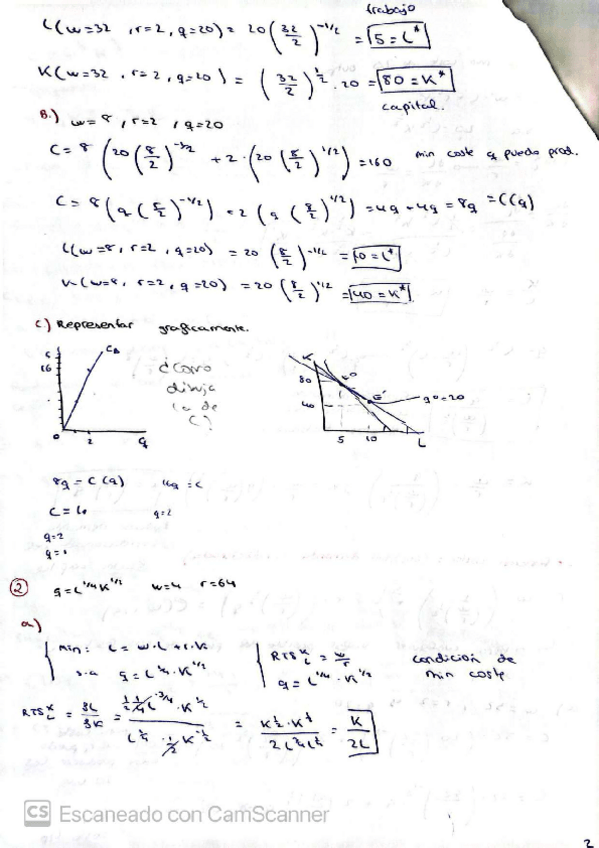 trabajo
L(w=32 , r=2, q=20) = 20 (32/2)^-1/2 = 5 = L*
K(w=32 , r=2, q=20) = (32/2)^1/2 · 20 = 80 = K*
capital.
B.) w=8, r=2, q=20
C = 8 (20 (8/2)^-1/2 + 2 · (20 (8/2)^1/2) = 160 min coste q puedo prod.
C = 8 (q (8/2)^-1/2) = 2 (q (8/2)^1/2) = 4q + 4q = 8q = C(q)
L(w=8, r=2, q=20) = 20 (8/2)^-1/2 = 10 = L*
K(w=8, r=2, q=20) = 20 (8/2)^1/2 = 40 = K*
C.) Representar graficamente.
C
16
CB
0
2
q
¿Como
dibuja
la de
C)
K
80
40
E'
q0=20
5
10
L
8q = C(q)
q=2
q=2
② q = L^1/4 K^1/2 w=4 r=64
a)
min: C = w·L + r·K
s.a q = L^1/4 · K^1/2
RTS K L = w/r
q = L^1/4 · K^1/2
condición de
min coste
K/2L
CS Escaneado con CamScanner
2